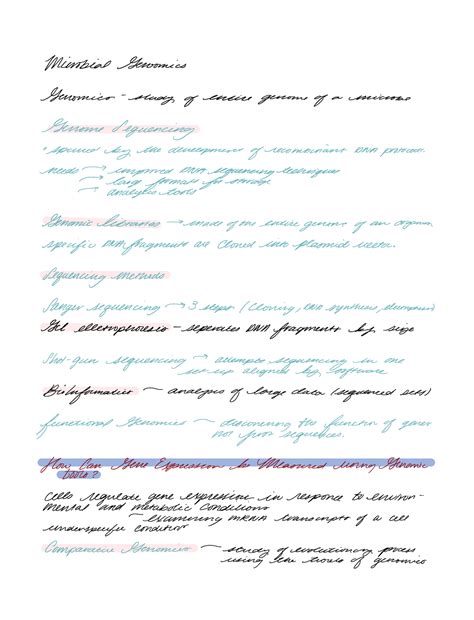 Microbial Genomics
Genomics - study of entire genome of a microbe
Genome Sequencing
• spurred by the development of recombinant DNA protocols
needs → improved DNA sequencing techniques
→ large formats for storage
→ analysis tools
Genomic libraries → made of the entire genome of an organism
specific DNA fragments are cloned into plasmid vector.
Sequencing Methods
Sanger sequencing → 3 steps (cloning, DNA synthesis, electrophoresis)
Gel electrophoresis - seperates DNA fragments by size
Shot-gun sequencing → sequencing in one
set-up aligned by software
Bioinformatics — analysis of large data (sequenced sets)
functional Genomics — discovering the function of genes
not from sequences.
How Can Gene Expression be Measured using Genomic
tools?
Cells regulate gene expression in response to environ-
mental and metabolic conditions
examining mRNA transcripts of a cell
under specific condition
Comparative Genomics — study of evolutionary process
using the tools of genomics